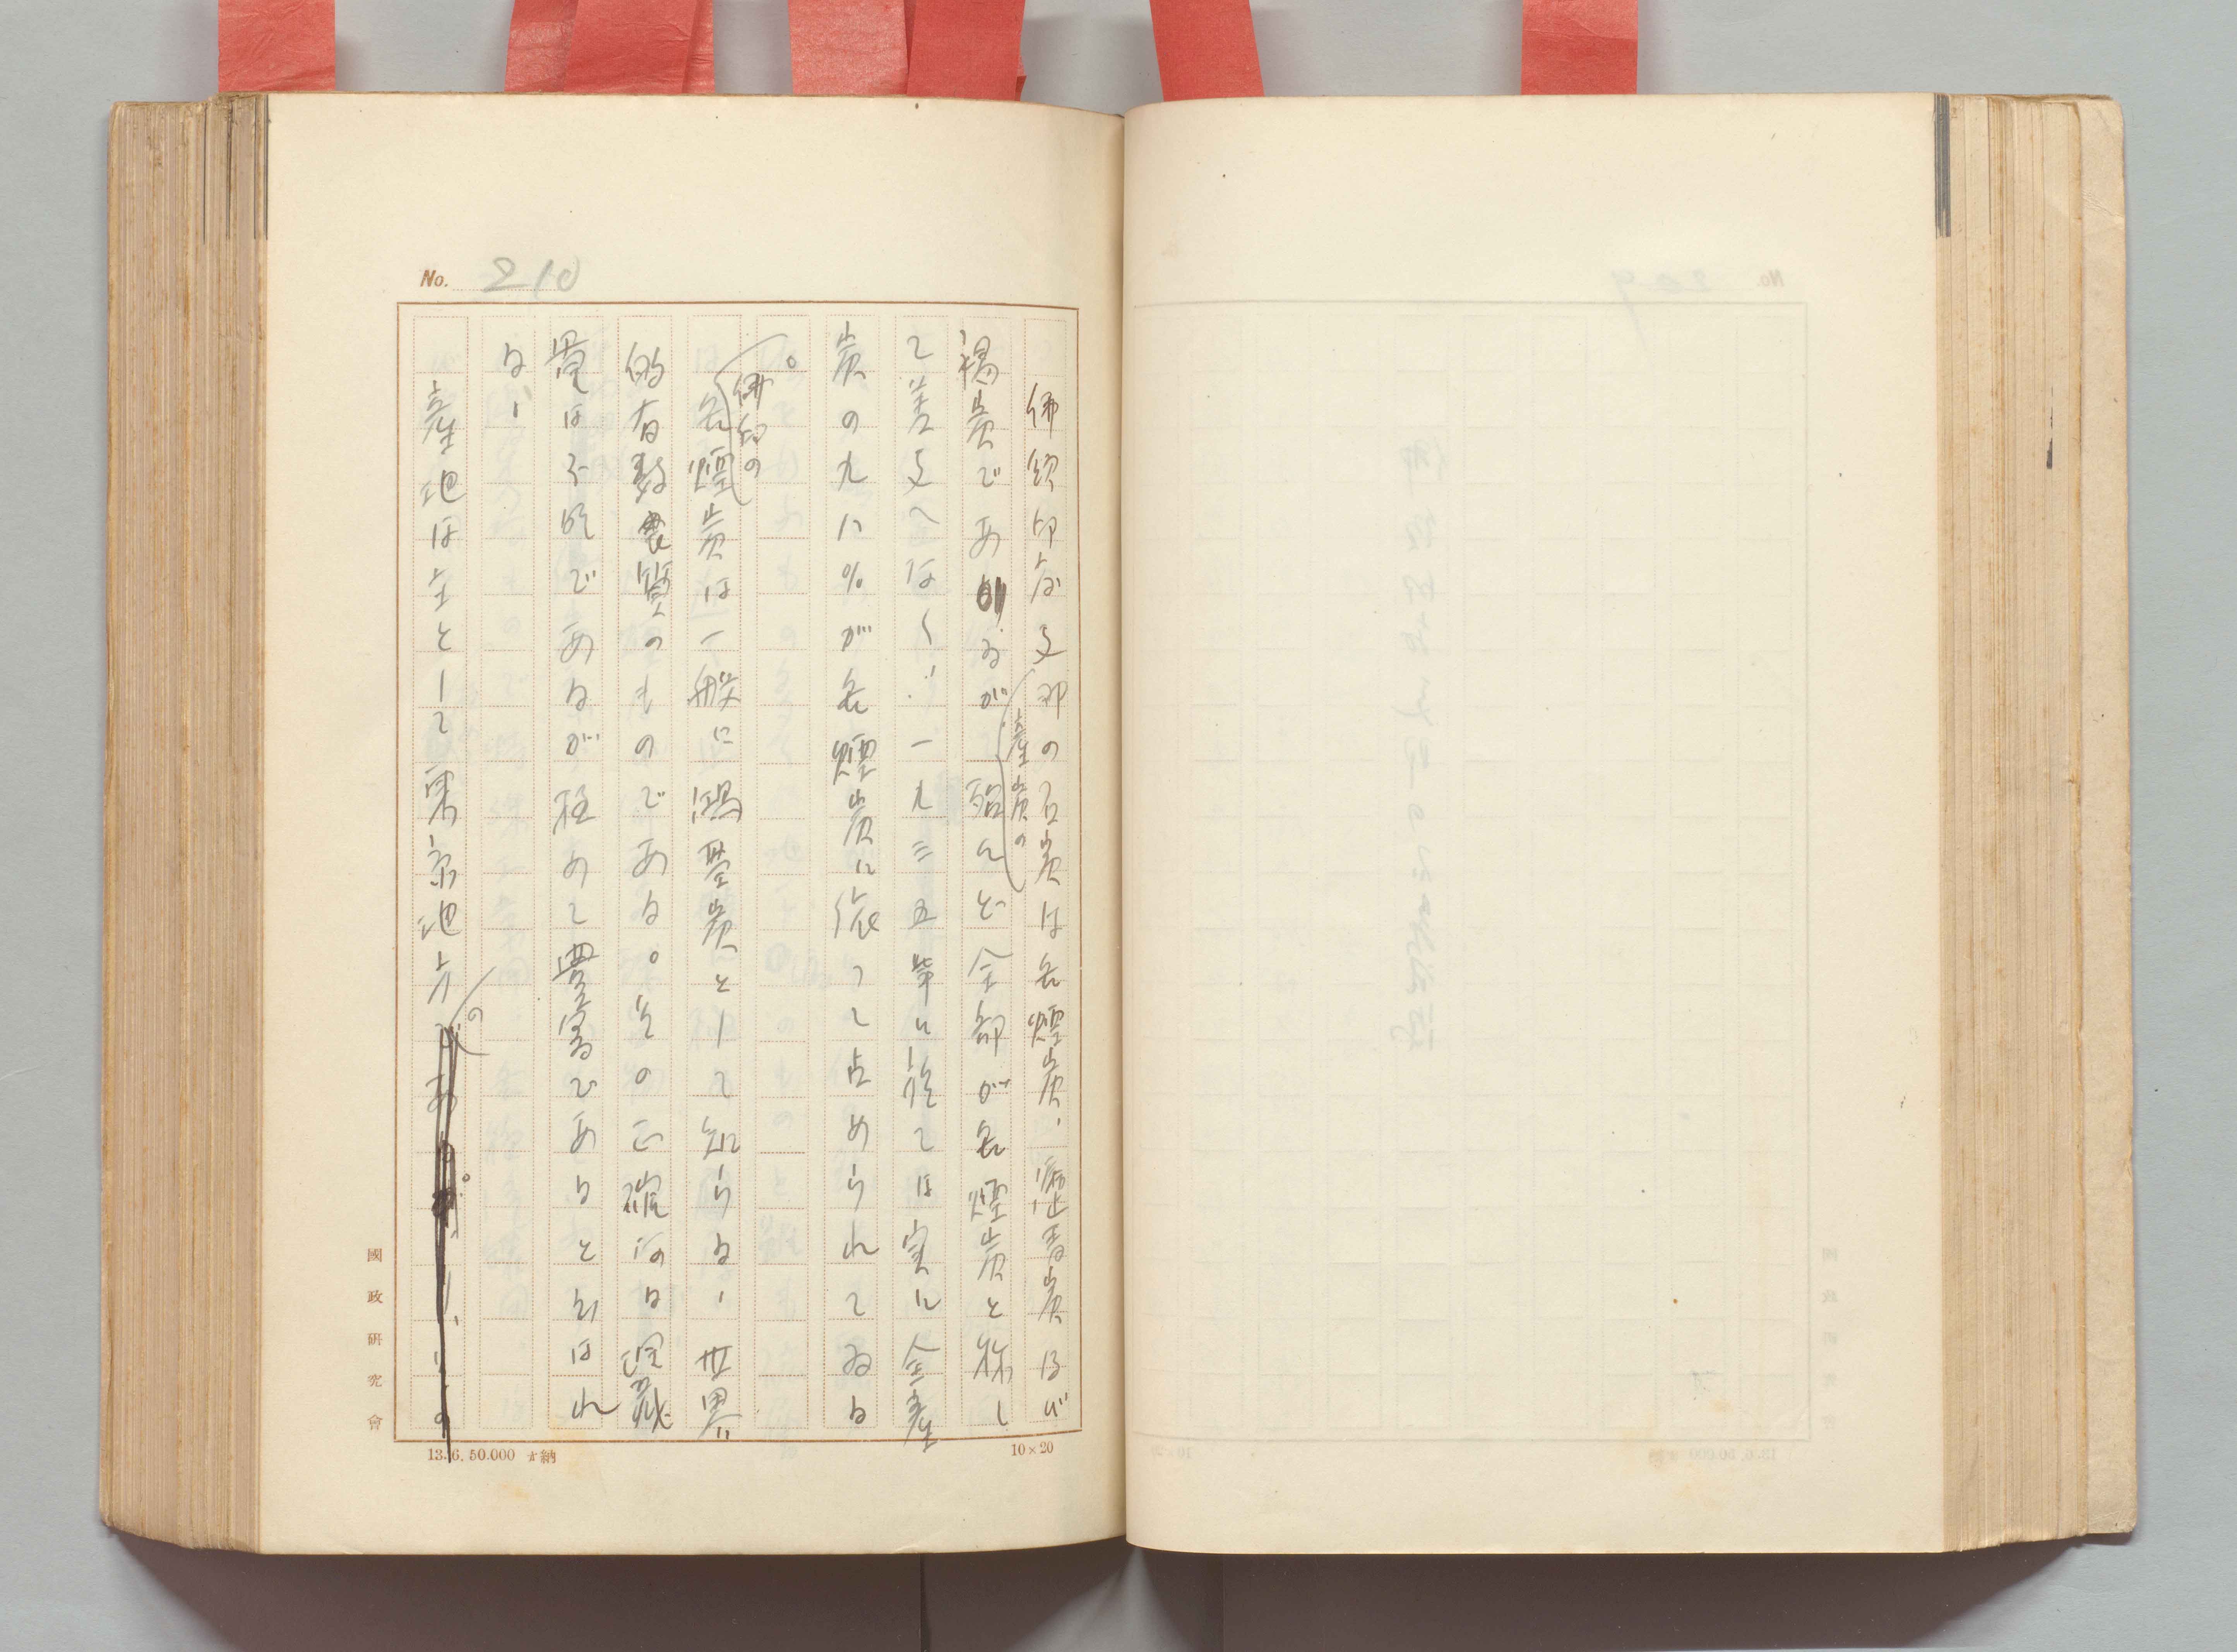 No. 210
佛領印度支那の石炭は無煙炭、瀝青炭及び
褐炭であるが産炭の殆んど全部が無煙炭と称し
て差支へはない。一九三五年に於ては実に全産
炭の九八%が無煙炭に依つて占められてゐる
。
佛印の無煙炭は一般に鴻基炭として知らる、世界
的有数良質のものである。その正確なる埋蔵
量は不明であるが極めて豊富であると云はれ
る、
産地は主として東京地方の
國政研究會
13. 6. 50.000 納
10×20